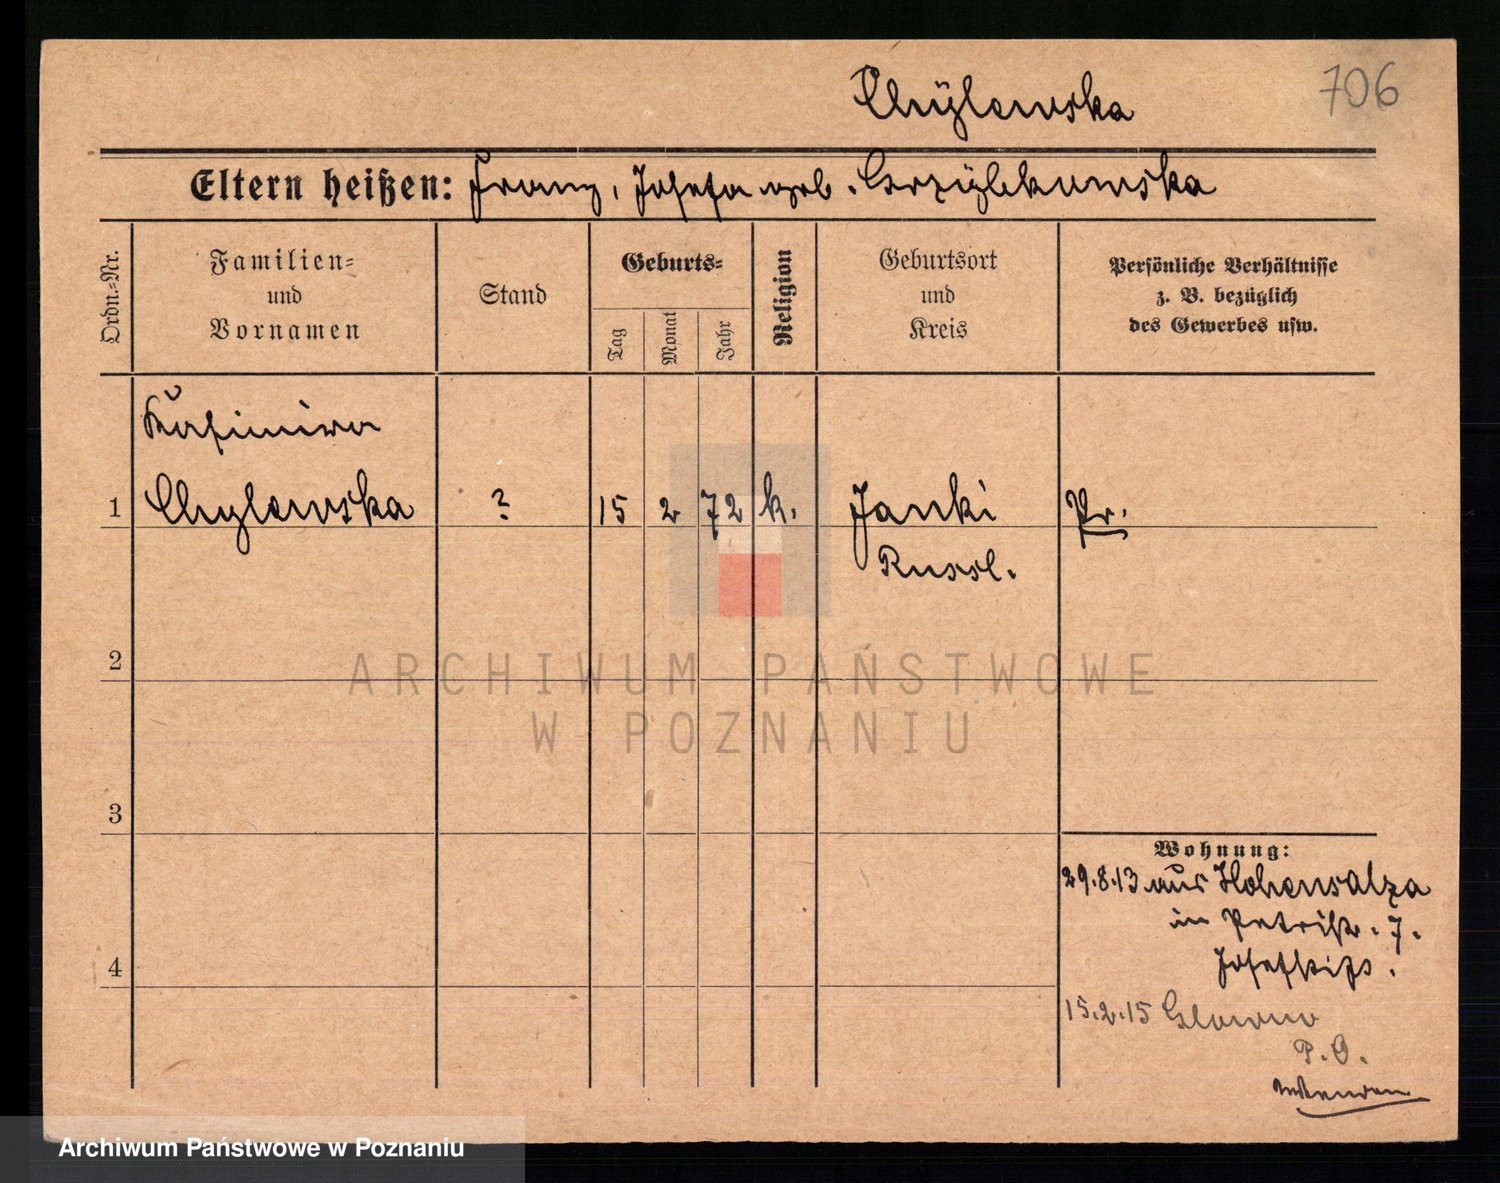 Chÿlewska
706
Eltern heißen: Franz, Josefa geb. Grzÿbkowska
Ordn.-Nr.
Familien-
und
Vornamen
Stand
Geburts-
Tag
Monat
Jahr
Religion
Geburtsort
und
Kreis
Persönliche Verhältnisse
z. B. bezüglich
des Gewerbes usw.
Kasimira
1 Chylewska ? 15 2 72 k. Janki Pr.
Russl.
2
ARCHIWUM PAŃSTWOWE
W POZNANIU
3
Wohnung:
29.8.13 aus Hohensalza
in Petristr. 7.
4
15.2.15 Glowno
P.O.
Archiwum Państwowe w Poznaniu